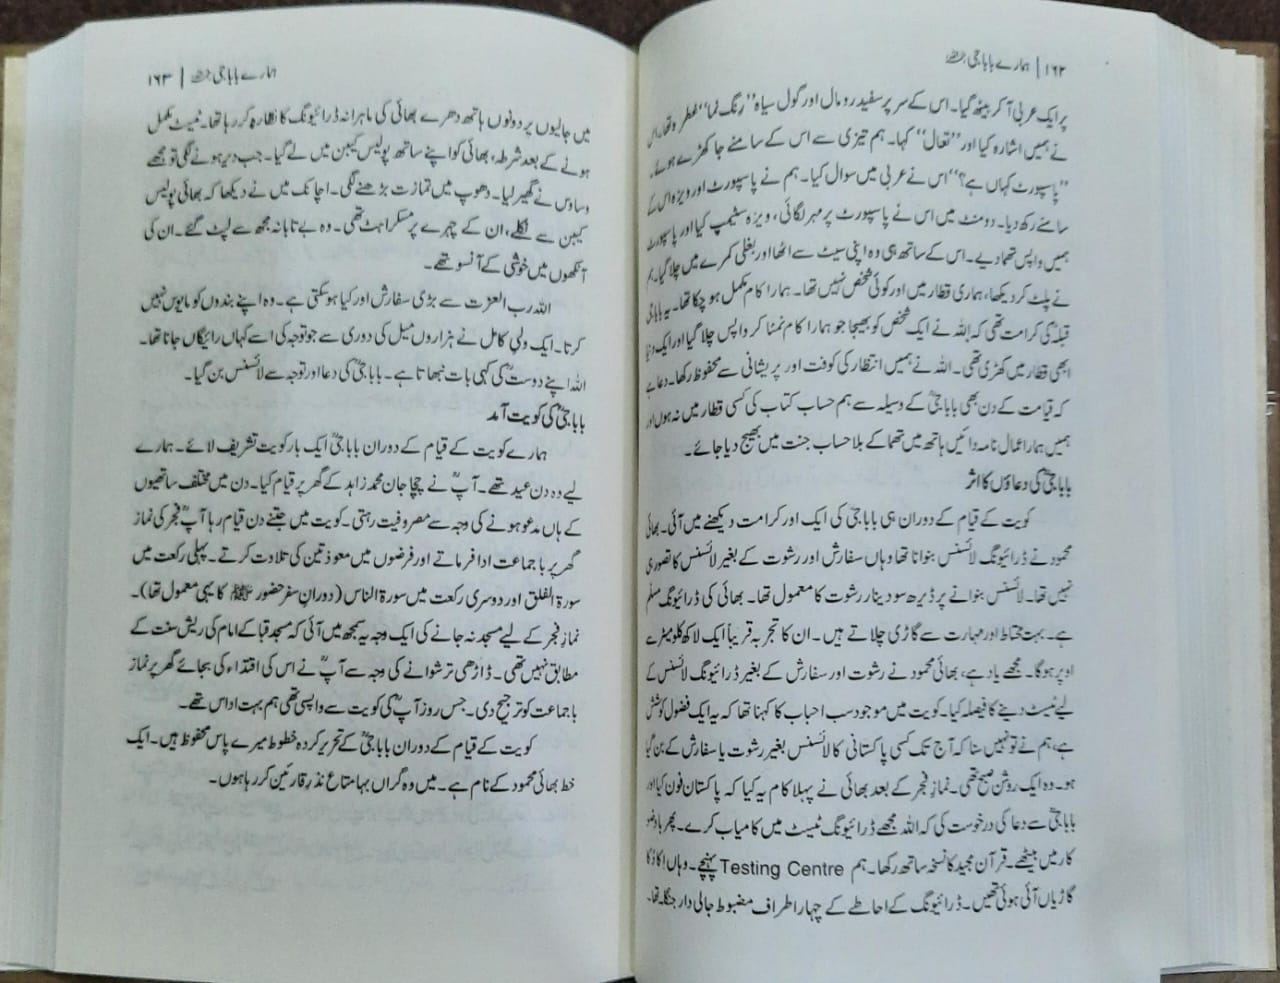 ۱۶۲ | ہمارے باباجیؒ
پر ایک عربی آ کر بیٹھ گیا۔ اس کے سر پر سفید رومال اور گول سیاہ ”رِنگ نما“ عطرہ تھا۔ اس
نے ہمیں اشارہ کیا اور ”تعال“ کہا۔ ہم تیزی سے اس کے سامنے جا کھڑے ہوئے۔
”پاسپورٹ کہاں ہے؟“ اس نے عربی میں سوال کیا۔ ہم نے پاسپورٹ اور ویزہ اس کے
سامنے رکھ دیا۔ دو منٹ میں اس نے پاسپورٹ پر مہر لگائی، ویزہ سٹیمپ کیا اور پاسپورٹ
ہمیں واپس تھما دیے۔ اس کے ساتھ ہی وہ اپنی سیٹ سے اٹھا اور بغلی کمرے میں چلا گیا۔ ہم
نے پلٹ کر دیکھا، ہماری قطار میں اور کوئی شخص نہیں تھا۔ ہمارا کام مکمل ہو چکا تھا۔ یہ باباجی
قبلہؒ کی کرامت تھی کہ اللہ نے ایک شخص کو بھیجا جو ہمارا کام نمٹا کر واپس چلا گیا اور ایک دنیا
ابھی قطار میں کھڑی تھی۔ اللہ نے ہمیں انتظار کی کوفت اور پریشانی سے محفوظ رکھا۔ دعا ہے
کہ قیامت کے دن بھی باباجیؒ کے وسیلہ سے ہم حساب کتاب کی کسی قطار میں نہ ہوں اور
ہمیں ہمارا اعمال نامہ دائیں ہاتھ میں تھما کے بلا حساب جنت میں بھیج دیا جائے۔
باباجیؒ کی دعاؤں کا اثر
کویت کے قیام کے دوران ہی باباجیؒ کی ایک اور کرامت دیکھنے میں آئی۔ بھائی
محمود نے ڈرائیونگ لائسنس بنوانا تھا وہاں سفارش اور رشوت کے بغیر لائسنس کا تصور ہی
نہیں تھا۔ لائسنس بنوانے پر ڈیرھ سو دینار رشوت کا معمول تھا۔ بھائی کی ڈرائیونگ مسلّم
ہے۔ بہت محتاط اور مہارت سے گاڑی چلاتے ہیں۔ ان کا تجربہ قریباً ایک لاکھ کلومیٹر سے
اوپر ہوگا۔ مجھے یاد ہے، بھائی محمود نے رشوت اور سفارش کے بغیر ڈرائیونگ لائسنس کے
لیے ٹیسٹ دینے کا فیصلہ کیا۔ کویت میں موجود سب احباب کا کہنا تھا کہ یہ ایک فضول کوشش
ہے، ہم نے تو نہیں سنا کہ آج تک کسی پاکستانی کا لائسنس بغیر رشوت یا سفارش کے بن گیا
ہو۔ وہ ایک روشن صبح تھی۔ نمازِ فجر کے بعد بھائی نے پہلا کام یہ کیا کہ پاکستان فون کیا اور
باباجیؒ سے دعا کی درخواست کی کہ اللہ مجھے ڈرائیونگ ٹیسٹ میں کامیاب کرے۔ پھر باوضو
کار میں بیٹھے۔ قرآن مجید کا نسخہ ساتھ رکھا۔ ہم Testing Centre پہنچے۔ وہاں اکا دُکا
گاڑیاں آئی ہوئی تھیں۔ ڈرائیونگ کے احاطے کے چہار اطراف مضبوط جالی دار جنگلہ تھا۔
ہمارے باباجیؒ | ۱۶۳
میں جالیوں پر دونوں ہاتھ دھرے بھائی کی ماہرانہ ڈرائیونگ کا نظارہ کر رہا تھا۔ ٹیسٹ مکمل
ہونے کے بعد شرطہ، بھائی کو اپنے ساتھ پولیس کیبن میں لے گیا۔ جب دیر ہونے لگی تو مجھے
وساوس نے گھیر لیا۔ دھوپ میں تمازت بڑھنے لگی۔ اچانک میں نے دیکھا کہ بھائی پولیس
کیبن سے نکلے، ان کے چہرے پر مسکراہٹ تھی۔ وہ بے تابانہ مجھ سے لپٹ گئے۔ ان کی
آنکھوں میں خوشی کے آنسو تھے۔
اللہ رب العزت سے بڑی سفارش اور کیا ہو سکتی ہے۔ وہ اپنے بندوں کو مایوس نہیں
کرتا۔ ایک ولیِ کامل نے ہزاروں میل کی دوری سے جو توجہ کی اسے کہاں رائیگاں جانا تھا۔
اللہ اپنے دوستؒ کی کہی بات نبھاتا ہے۔ باباجیؒ کی دعا اور توجہ سے لائسنس بن گیا۔
باباجیؒ کی کویت آمد
ہمارے کویت کے قیام کے دوران باباجیؒ ایک بار کویت تشریف لائے۔ ہمارے
لیے وہ دن عید تھے۔ آپؒ نے چچا جان محمد زاہد کے گھر پر قیام کیا۔ دن میں مختلف ساتھیوں
کے ہاں مدعو ہونے کی وجہ سے مصروفیت رہتی۔ کویت میں جتنے دن قیام رہا آپؒ فجر کی نماز
گھر پر باجماعت ادا فرماتے اور فرضوں میں معوذتین کی تلاوت کرتے۔ پہلی رکعت میں
سورۃ الفلق اور دوسری رکعت میں سورۃ الناس (دورانِ سفر حضور ﷺ کا یہی معمول تھا)۔
نمازِ فجر کے لیے مسجد نہ جانے کی ایک وجہ یہ سمجھ میں آئی کہ مسجد قبا کے امام کی ریش سنت کے
مطابق نہیں تھی۔ ڈاڑھی ترشوانے کی وجہ سے آپؒ نے اس کی اقتداء کی بجائے گھر پر نماز
باجماعت کو ترجیح دی۔ جس روز آپؒ کی کویت سے واپسی تھی ہم بہت اداس تھے۔
کویت کے قیام کے دوران باباجیؒ کے تحریر کردہ خطوط میرے پاس محفوظ ہیں۔ ایک
خط بھائی محمود کے نام ہے۔ میں وہ گراں بہا متاع نذرِ قارئین کر رہا ہوں۔